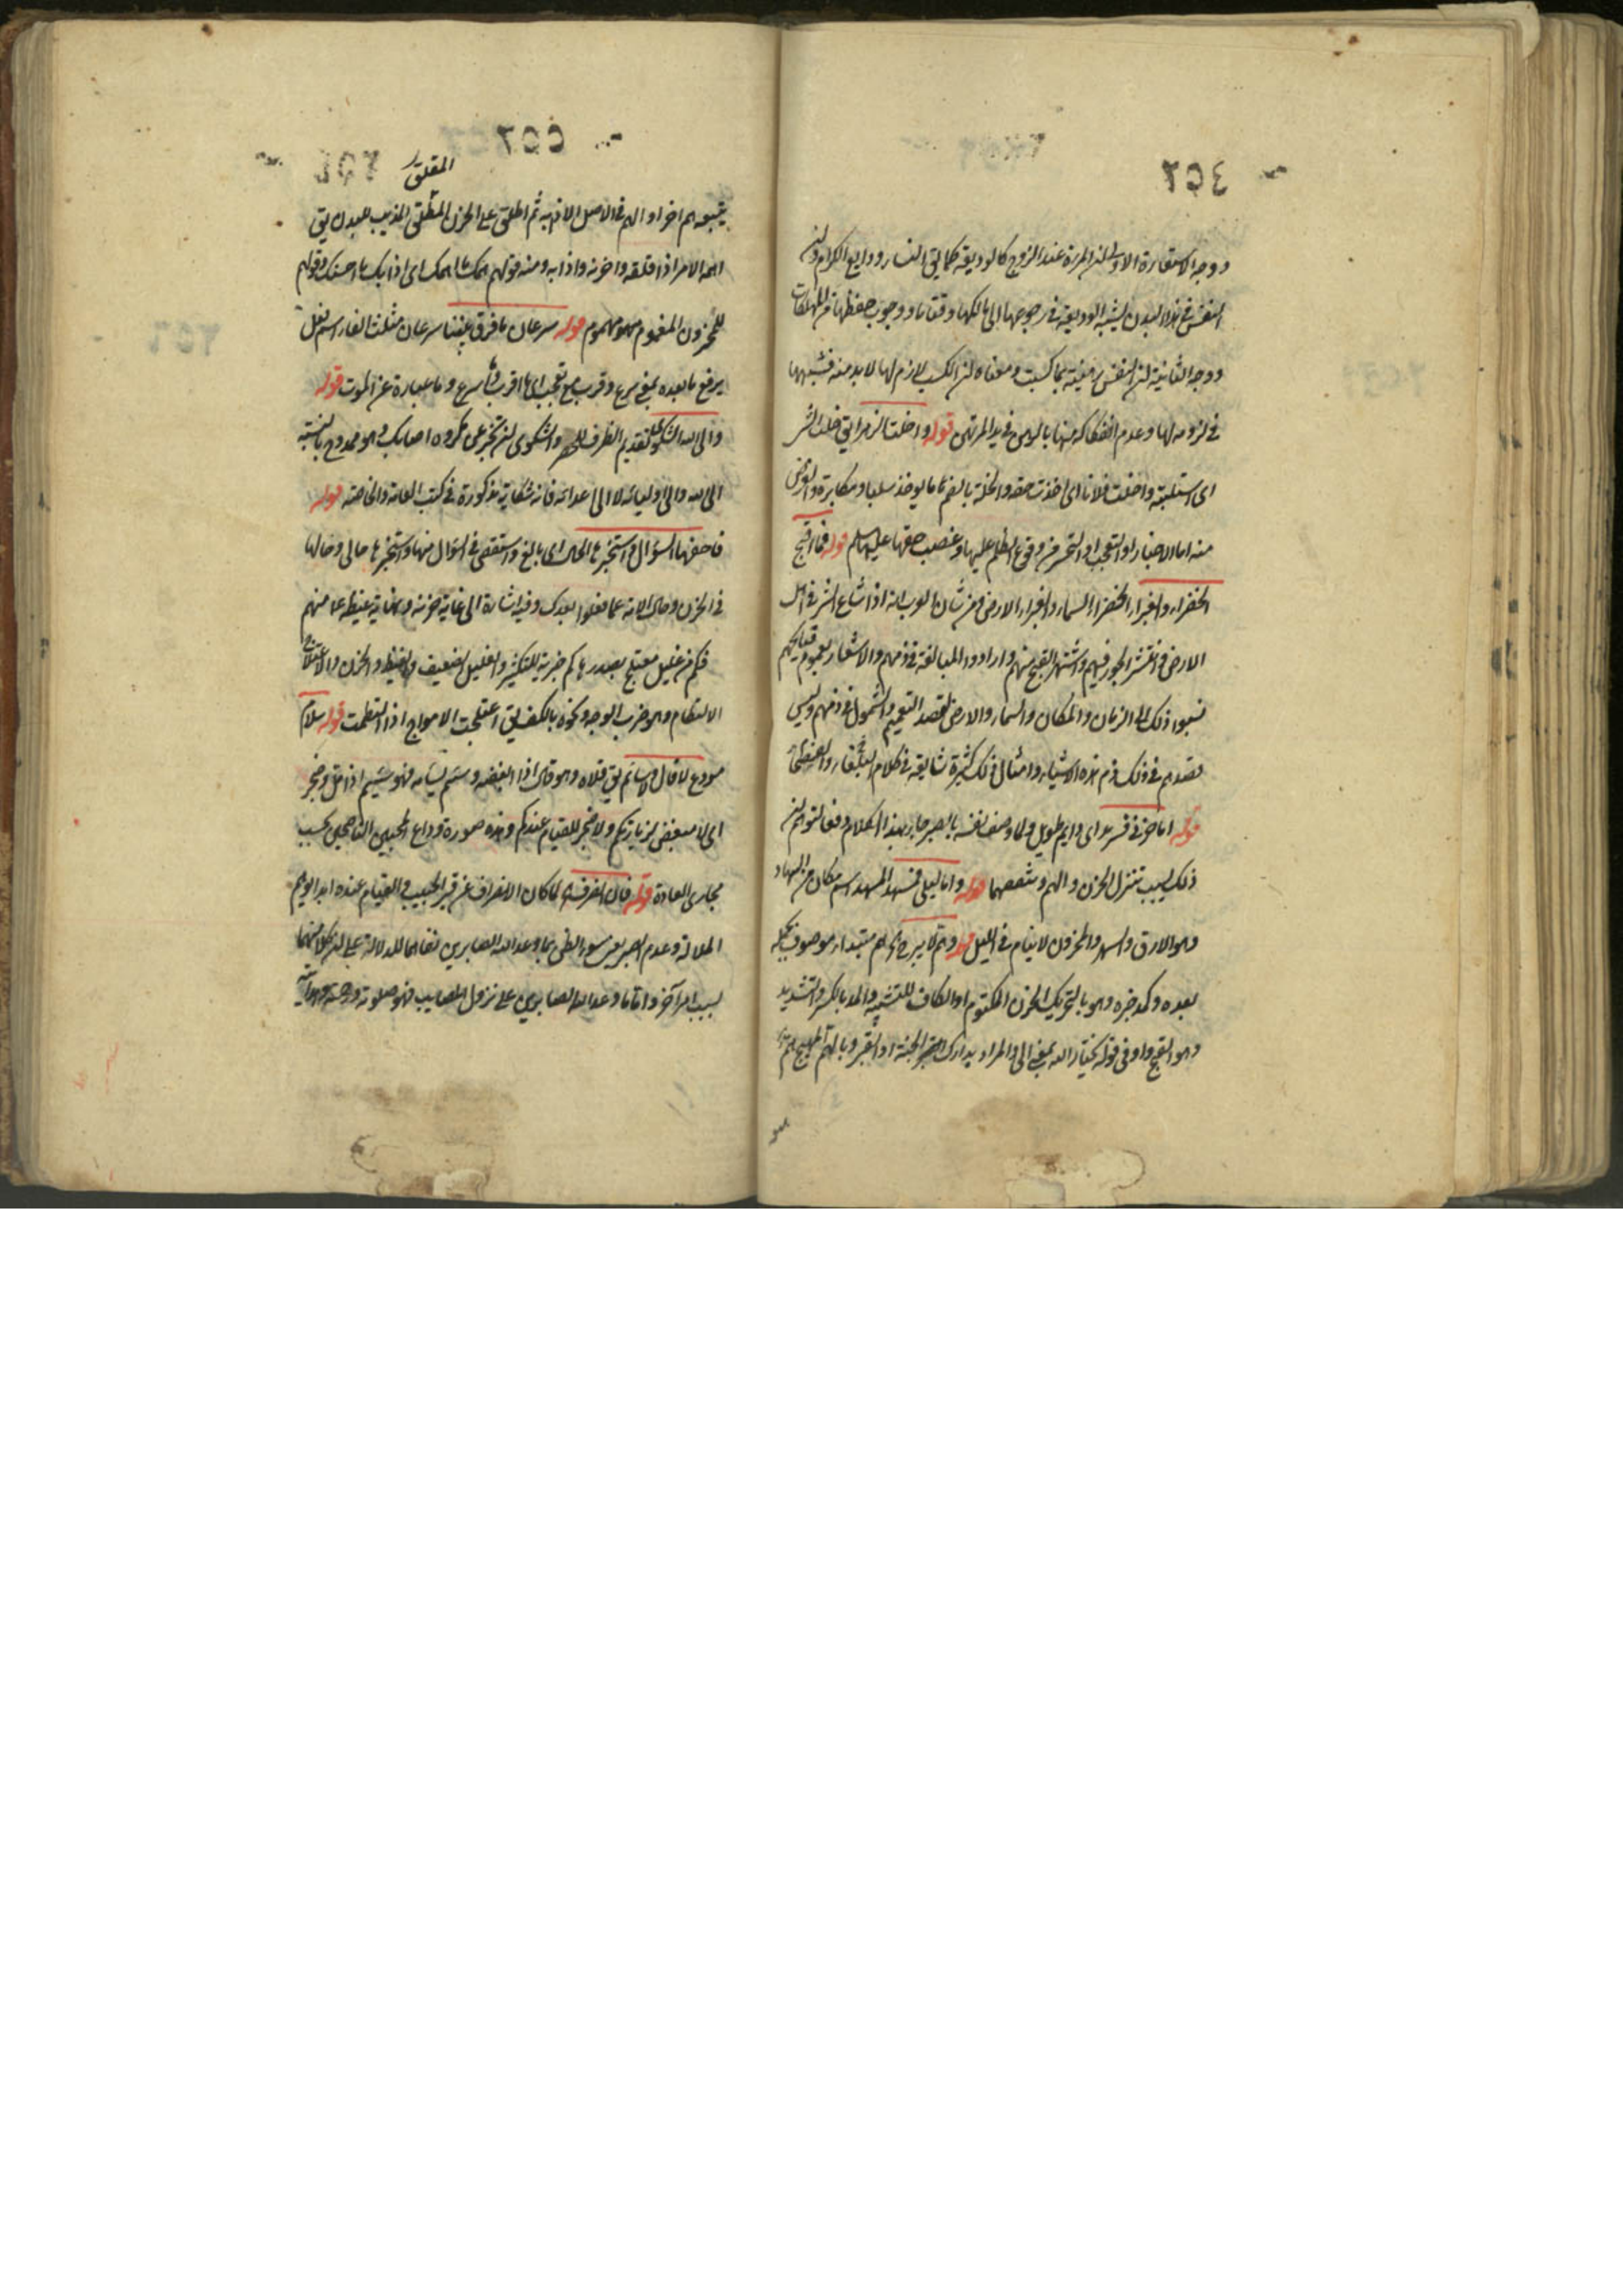 ووجه الاستعارة الاولى ان المرءة عند الزوج كالوديعة كما يق النساء ودايع الكرام وان
النفس في هذا البدن يشبه الوديعة في رجوعها الى مالكها وقتا ما ووجوب حفظها من المهلكات
ووجه الثانية ان النفس رهينة بما كسبت ومعناه ان الكسب لازم لها لا بد منه فشبهها
في لزومه لها وعدم انفكاكه منها بالرهن في يد المرتهن قوله واختلست الزهراء يق خلست الشىء
اى استلبته واختلست فلانا اى اخذت حقه والخلسة بالضم ما يوخذ سلبا ومكابرة والغرض
منه اما الاخبار او التعجب او التحسر من وقوع الظلم عليها وغصب حقها عليها السلم قوله فما اقبح
الخضراء والغبراء الخضراء السماء والغبراء الارض من شان العرب انه اذا شاع الشر في اهل
الارض وانتشر الجور فيهم واشتهر القبيح منهم وارادوا المبالغة في ذمهم والاشعار بعموم قبايحهم
نسبوا ذلك الى الزمان والمكان والسماء والارض لقصد التعميم والشمول في ذمهم وليس
قصدهم في ذلك ذم هذه الاشياء وامثال ذلك كثيرة شايعة في كلام البلغاء والفصحاء
قوله اما حزني فسرمد اى دايم طويل ولما وصف نفسه بالصبر جاء بهذا الكلام دفعا لتوهم ان
ذلك لسبب تنزل الحزن والهم وضعفهما قوله واما ليلى فمسهد المسهد اسم مكان من السهاد
وهو الارق والسهر والمحزون لا ينام في الليل قوله وهم لا يبرح هم مبتداء موصوف بجملة
بعده وكمد خبره وهو بالتحريك الحزن المكتوم او الكاف للتشبيه والمد بالكسر والتشديد
وهو القيح واو في قوله او يختار الله بمعنى الى والمراد بدارك الجنة او القبر وبالهم المهيج
المقلق
يتبعه هم اخر او الهم في الاصل الاذابة ثم اطلق على الحزن المقلق المذيب للبدن يق
اهمه الامر اذا اقلقه واحزنه واذابه ومنه قولهم همك ما اهمك اى اذابك ما احزنك وقولهم
للمحزون المغموم مهموم قوله سرعان ما فرق بيننا سرعان مثلث الفاء اسم فعل
يرفع ما بعده بمعنى سرع وقرب مع تعجب اى ما اقرب وما اسرع وما عبارة عن الموت قوله
والى الله اشكو تقديم الظرف للحصر والشكوى ان تخبر عن مكروه اصابك وهو ممدوح بالنسبة
الى الله والى اوليائه لا الى اعدائه فانه شكاية مذكورة في كتب العامة والخاصة قوله
فاحفها السؤال واستخبرها الحال اى بالغ واستقص في السؤال منها واستخبرها حالى وحالها
في الحزن وحال الامة عما فعلوا بعدك وفيه اشارة الى غاية حزنه ونهاية غيظه عما منهم
فكم من غليل معتلج بصدرها كم خبرية للتكثير والغليل الضعيف والغيظ والحزن والاعتلاج
الالتطام وهو ضرب الوجه ونحوه بالكف يق اعتلجت الامواج اذا التطمت قوله سلام
مودع لا قال ولا سائم يق قلاه وهو قال اذا ابغضه وسئم يسأمه فهو سئيم اذا مل وضجر
اى لا مبغض لزيارتكم ولا ضجر للقيام عندكم وهذه صورة وداع المحبين الناصحين بحسب
مجارى العادة قوله فان انصرف اه لما كان الانصراف عن قبر الحبيب والقيام عنده امرا يوهم
الملالة وعدم الصبر وسوء الظن بما وعد الله الصابرين نفاهما للدلالة على ان كلا منهما
لسبب امر آخر واما ما وعد الله الصابرين على نزول المصايب فهو صلوته ورحمته وهدايته